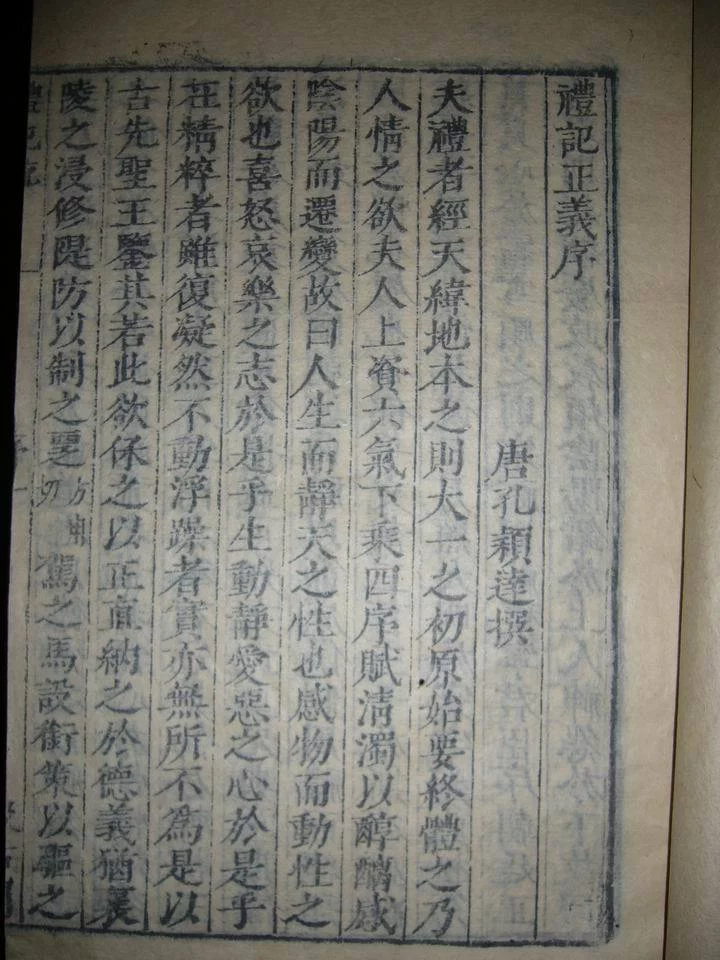 禮記正義序
唐孔穎達撰
夫禮者經天緯地本之則大一之初原始要終體之乃
人情之欲夫人上資六氣下乘四序賦清濁以醇醨感
陰陽而遷變故曰人生而靜天之性也感物而動性之
欲也喜怒哀樂之志於是乎生動靜愛惡之心於是乎
在精粹者雖復凝然不動浮躁者實亦無所不為是以
古先聖王鑒其若此欲保之以正直納之於德義猶襄
陵之浸修隄防以制之覂方切駕之馬設銜策以驅之
禮記疏